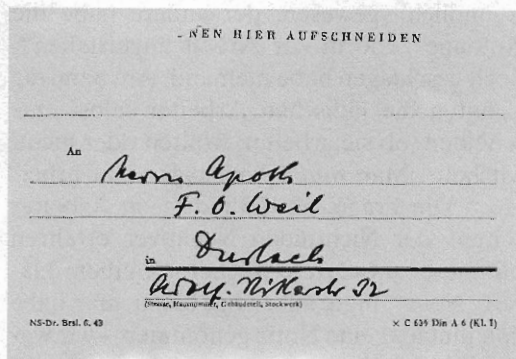 NEN HIER AUFSCHNEIDEN
An
Herrn Apoth
F. O. Weil
in
Durlach
Adolf-Hitlerstr 32
(Straße, Hausnummer, Gebäudeteil, Stockwerk)
NS-Dr. Brsl. 6. 43
× C Din A 6 (Kl. I)